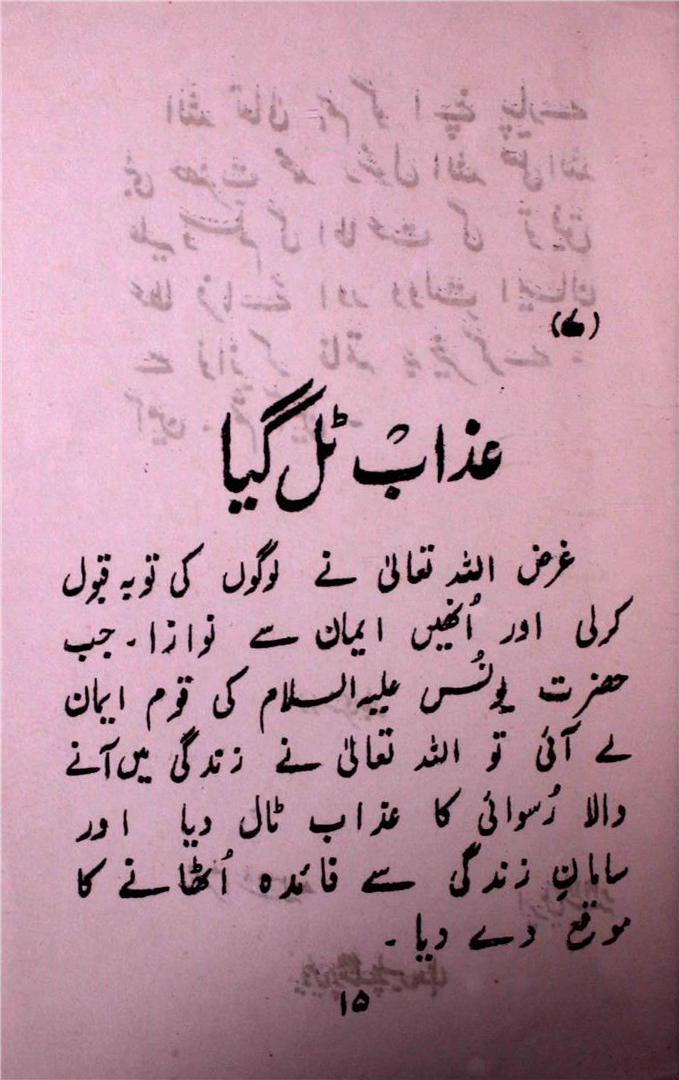 (۷)
عذاب ٹل گیا
غرض اللہ تعالیٰ نے لوگوں کی توبہ قبول
کرلی اور اُنھیں ایمان سے نوازا۔ جب
حضرت یونُس علیہ السلام کی قوم ایمان
لے آئی تو اللہ تعالیٰ نے زندگی میں آنے
والا رُسوائی کا عذاب ٹال دیا اور
سامانِ زندگی سے فائدہ اُٹھانے کا
موقع دے دیا۔
۱۵